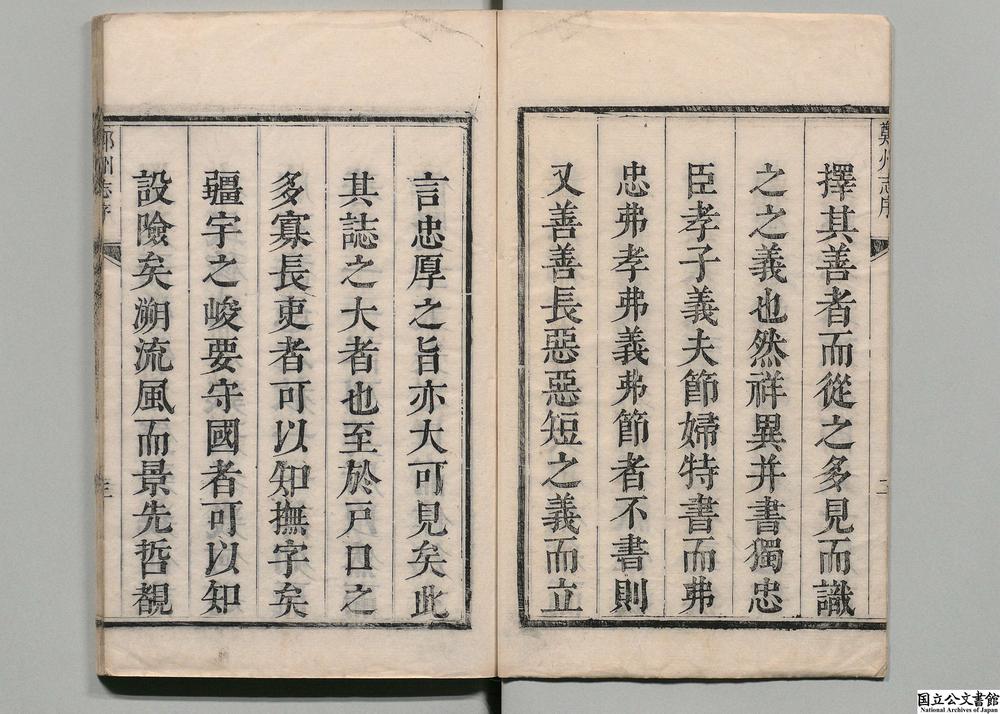 鄭州志序
擇其善者而從之多見而識
之之義也然祥異并書獨忠
臣孝子義夫節婦特書而弗
忠弗孝弗義弗節者不書則
又善善長惡惡短之義而立
二
言忠厚之旨亦大可見矣此
其誌之大者也至於戸口之
多寡長吏者可以知撫字矣
疆宇之峻要守國者可以知
設險矣溯流風而景先哲覩
鄭州志序
三
国立公文書館
National Archives of Japan